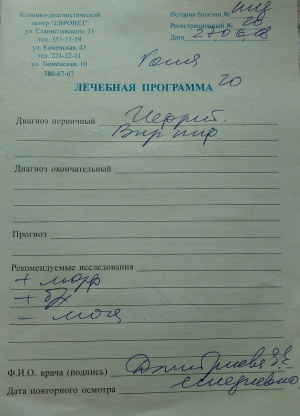 Клинико-диагностический
центр "ЕВРОВЕТ"
ул. Станиславского, 31
тел. 353-51-59
ул. Каменская, 45
тел. 224-32-11
ул. Тюменская, 10
380-67-67
История болезни №
Регистрационный № 20
Дата 27.06.08
ЛЕЧЕБНАЯ ПРОГРАММА 20
Диагноз первичный Нефрит.
Вир
Диагноз окончательный
Прогноз
Рекомендуемые исследования
+ морф
+ б/х
– моча
Ф.И.О. врача (подпись) Дмитриева
Дата повторного осмотра ежедневно